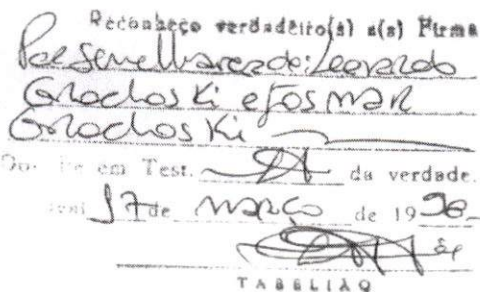 Reconheço verdadeiro(s) a(s) Firma
Por Semelhança de: Leonardo
Grochoski e Josmar
Grochoski
Dou fé em Test. da verdade.
17 de março de 1996
TABELIÃO